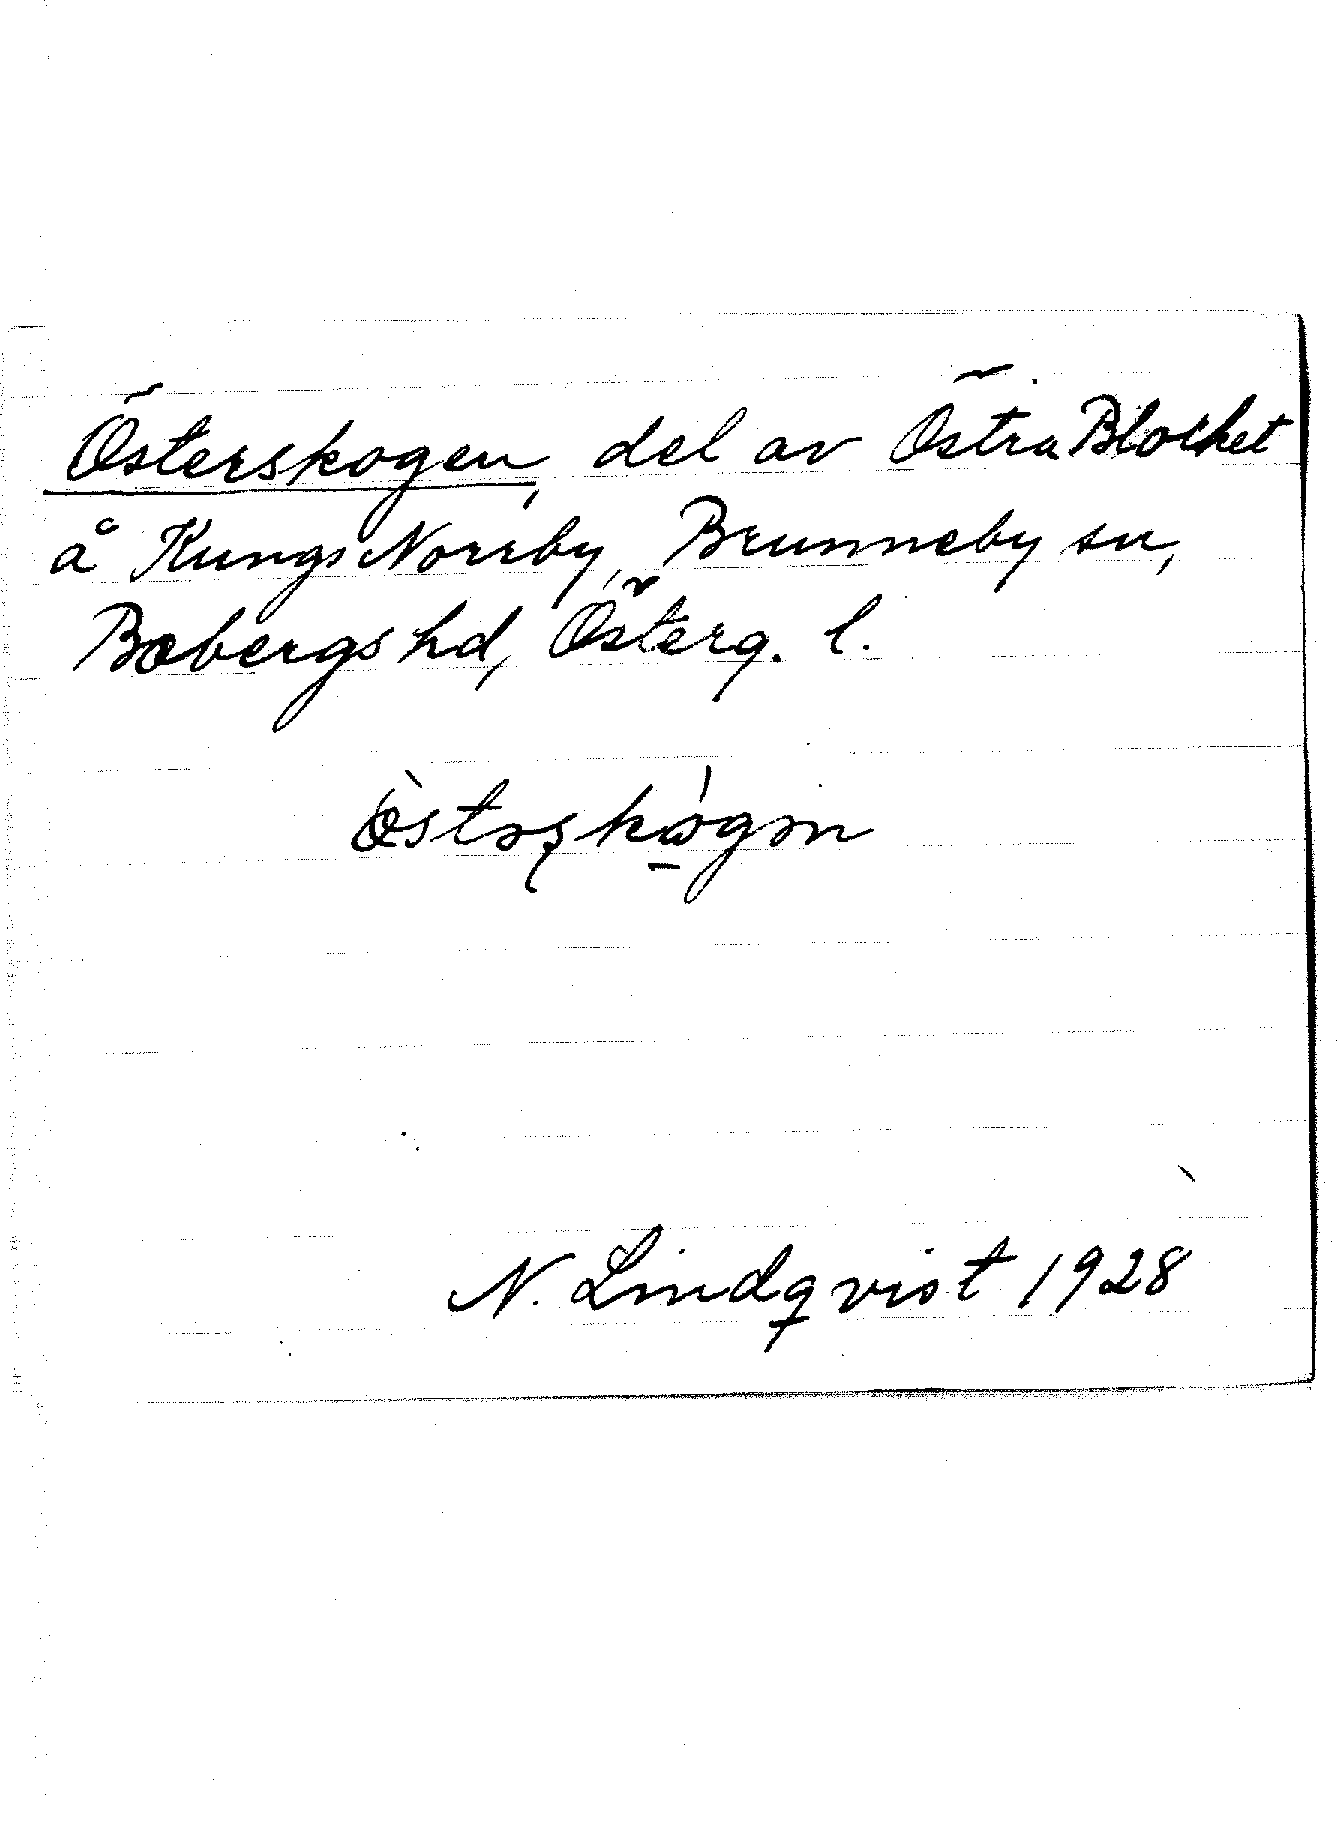 Österskogen, del av Östra Blocket
å Kungs Norrby, Brunneby sn,
Bobergs hd, Österg. l.
östəʂkogən
N. Lindqvist 1928